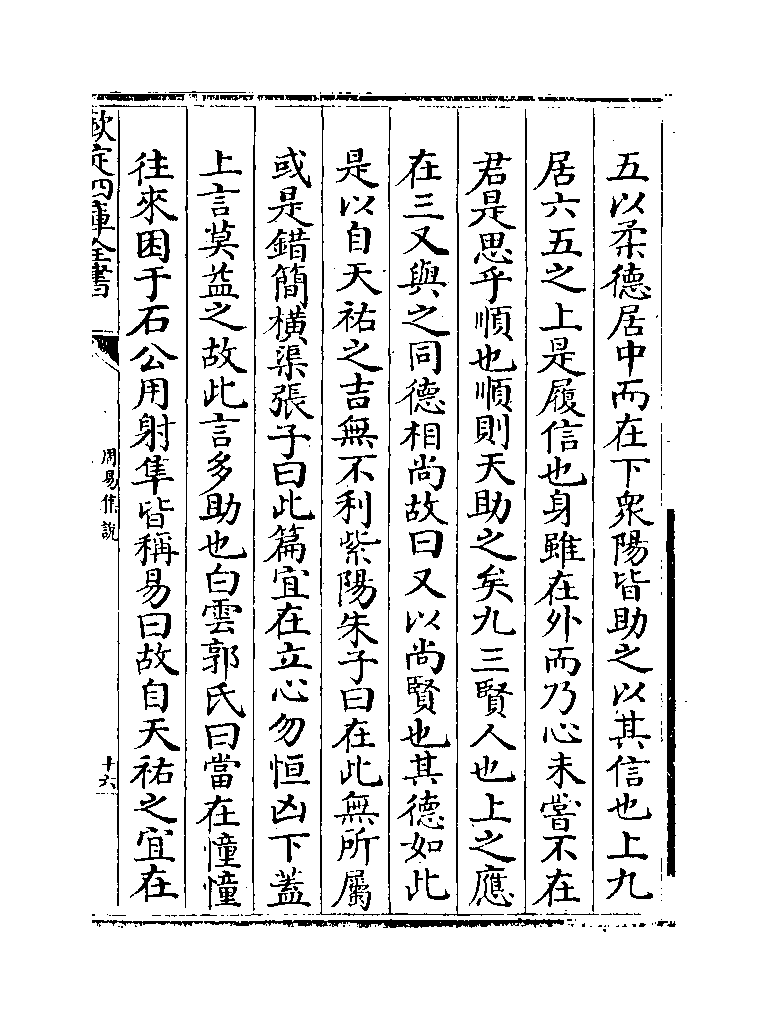 五以柔德居中而在下衆陽皆助之以其信也上九
居六五之上是履信也身雖在外而乃心未嘗不在
君是思乎順也順則天助之矣九三賢人也上之應
在三又與之同德相尚故曰又以尚賢也其德如此
是以自天祐之吉無不利紫陽朱子曰在此無所屬
或是錯簡橫渠張子曰此篇宜在立心勿恒凶下蓋
上言莫益之故此言多助也白雲郭氏曰當在憧憧
往來困于石公用射隼皆稱易曰故自天祐之宜在
欽定四庫全書
周易集說
十六